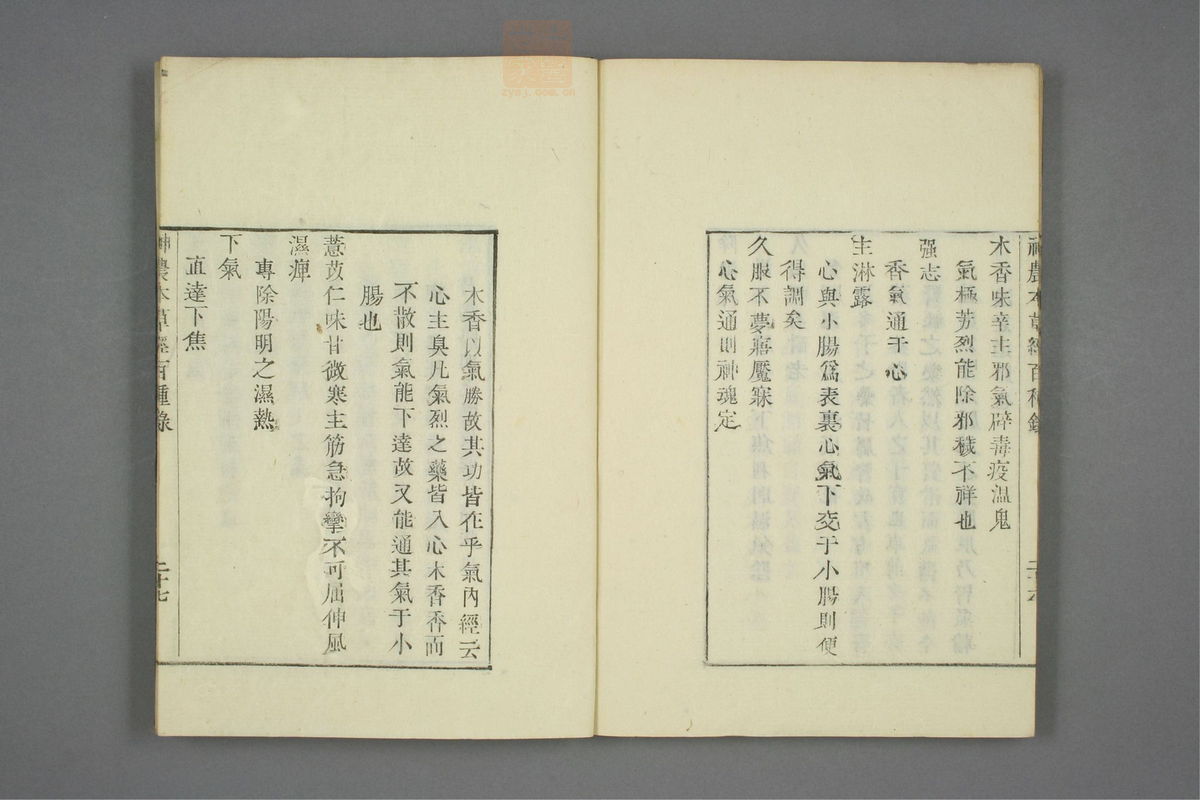 神農本草經百種錄
二十六
木香味辛主邪氣辟毒疫温鬼
氣極芳烈能除邪穢不祥也
强志
香氣通于心
主淋露
心與小腸爲表裏心氣下交于小腸則便
得調矣
久服不夢寤魘寐
心氣通則神魂定
木香以氣勝故其功皆在乎氣内經云
心主臭凡氣烈之藥皆入心木香香而
不散則氣能下達故又能通其氣于小
腸也
薏苡仁味甘微寒主筋急拘攣不可屈伸風
濕痺
專除陽明之濕熱
下氣
直達下焦
神農本草經百種錄
二十七
zysj.com.cn